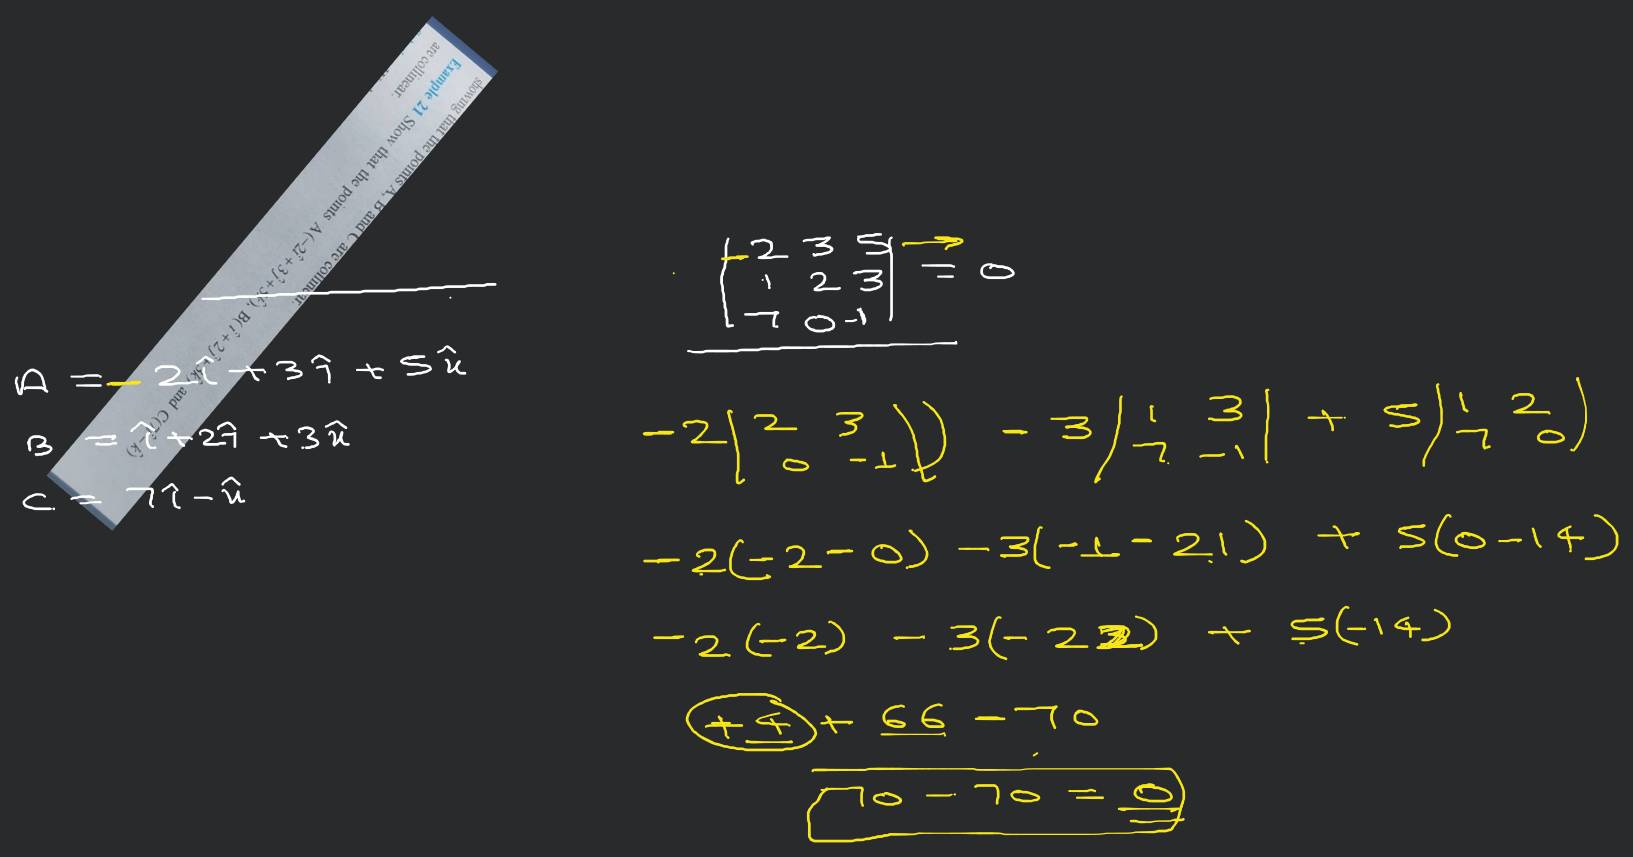 showing that the points A, B and C are collinear.
Example 21 Show that the points A(−2î+3ĵ+5k̂), B(î+2ĵ+3k̂) and C(7î−k̂)
are collinear.
A = - 2î + 3ĵ + 5k̂
B = î + 2ĵ + 3k̂
C = 7î - k̂
|-2 3 5|
|1 2 3| = 0
|7 0 -1|
-2|2 3|) - 3|1 3| + 5|1 2|
|0 -1| |7 -1| |7 0|
-2(-2-0) -3(-1-21) + 5(0-14)
-2(-2) - 3(-22) + 5(-14)
+4 + 66 - 70
70 - 70 = 0